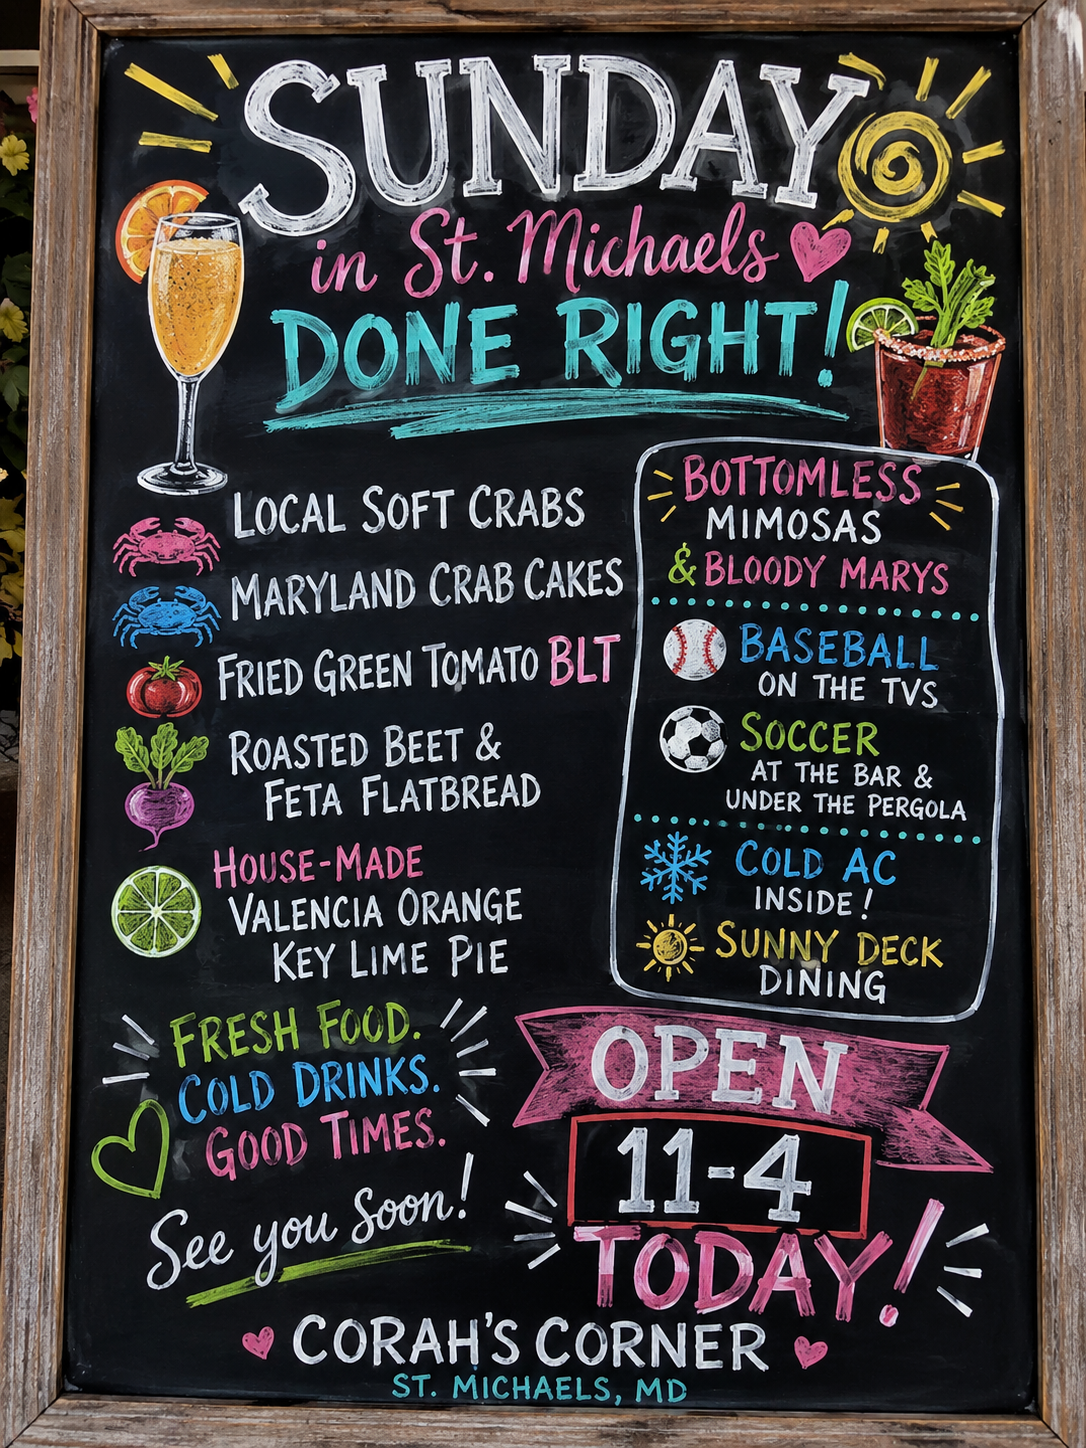 SUNDAY
in St. Michaels
DONE RIGHT!
LOCAL SOFT CRABS
MARYLAND CRAB CAKES
FRIED GREEN TOMATO BLT
ROASTED BEET &
FETA FLATBREAD
HOUSE-MADE
VALENCIA ORANGE
KEY LIME PIE
BOTTOMLESS
MIMOSAS
& BLOODY MARYS
BASEBALL
ON THE TVS
SOCCER
AT THE BAR &
UNDER THE PERGOLA
COLD AC
INSIDE!
SUNNY DECK
DINING
FRESH FOOD.
COLD DRINKS.
GOOD TIMES.
See you soon!
OPEN
11-4
TODAY!
CORAH'S CORNER
ST. MICHAELS, MD